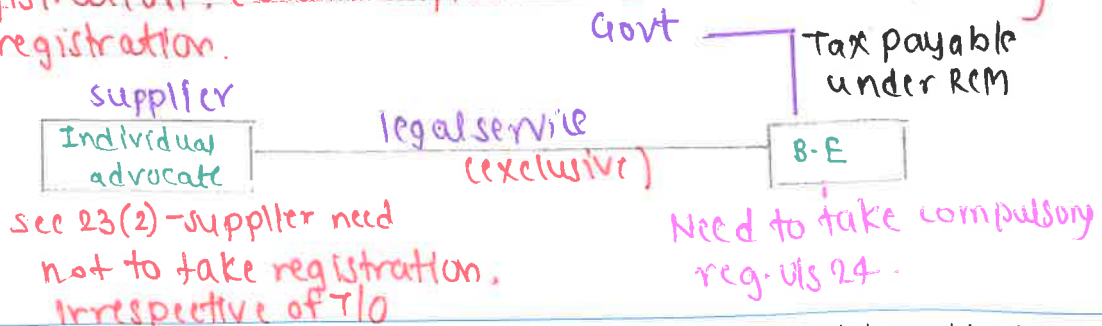 registration.
Govt
Tax payable
under RCM
supplier
Individual
advocate
legal service
(exclusive)
B.E
see 23(2)-supplier need
not to take registration.
irrespective of T/O
Need to take compulsory
reg. u/s 24.